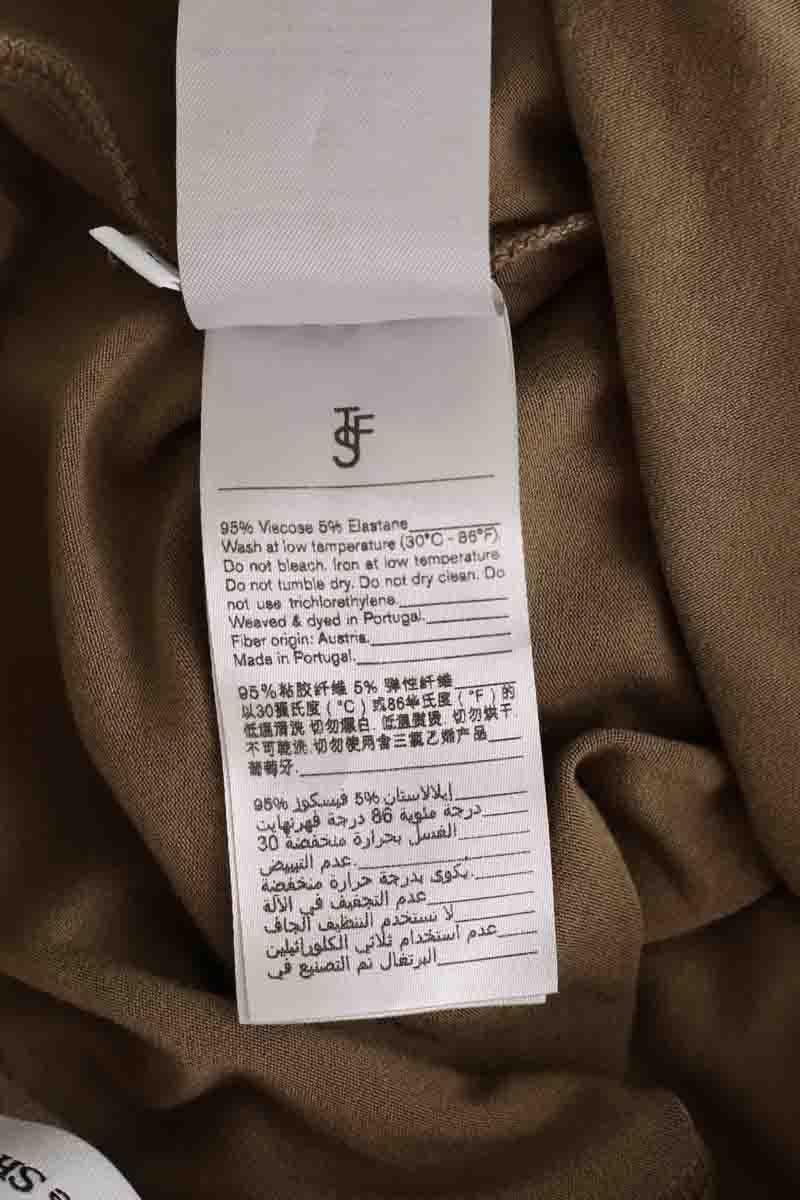 TSF
95% Viscose 5% Elastane
Wash at low temperature (30°C - 86°F)
Do not bleach. Iron at low temperature
Do not tumble dry. Do not dry clean. Do
not use trichlorethylene.
Weaved & dyed in Portugal.
Fiber origin: Austria.
Made in Portugal.
95%粘胶纤维 5% 弹性纤维
以30摄氏度 (°C) 或86华氏度 (°F) 的
低温清洗 切勿漂白. 低温熨烫. 切勿烘干.
不可能洗. 切勿使用含三氯乙烯产品
葡萄牙.
إيلالاستان 5% فيسكوز 95%
درجة مئوية 86 درجة فهرنهايت
الغسل بحرارة منخفضة 30
عدم التبييض.
يكوى بدرجة حرارة منخفضة.
عدم التجفيف في الآلة
لا تستخدم التنظيف الجاف
عدم استخدام ثلاثي الكلوراثيلين
البرتغال تم التصنيع في
Sh